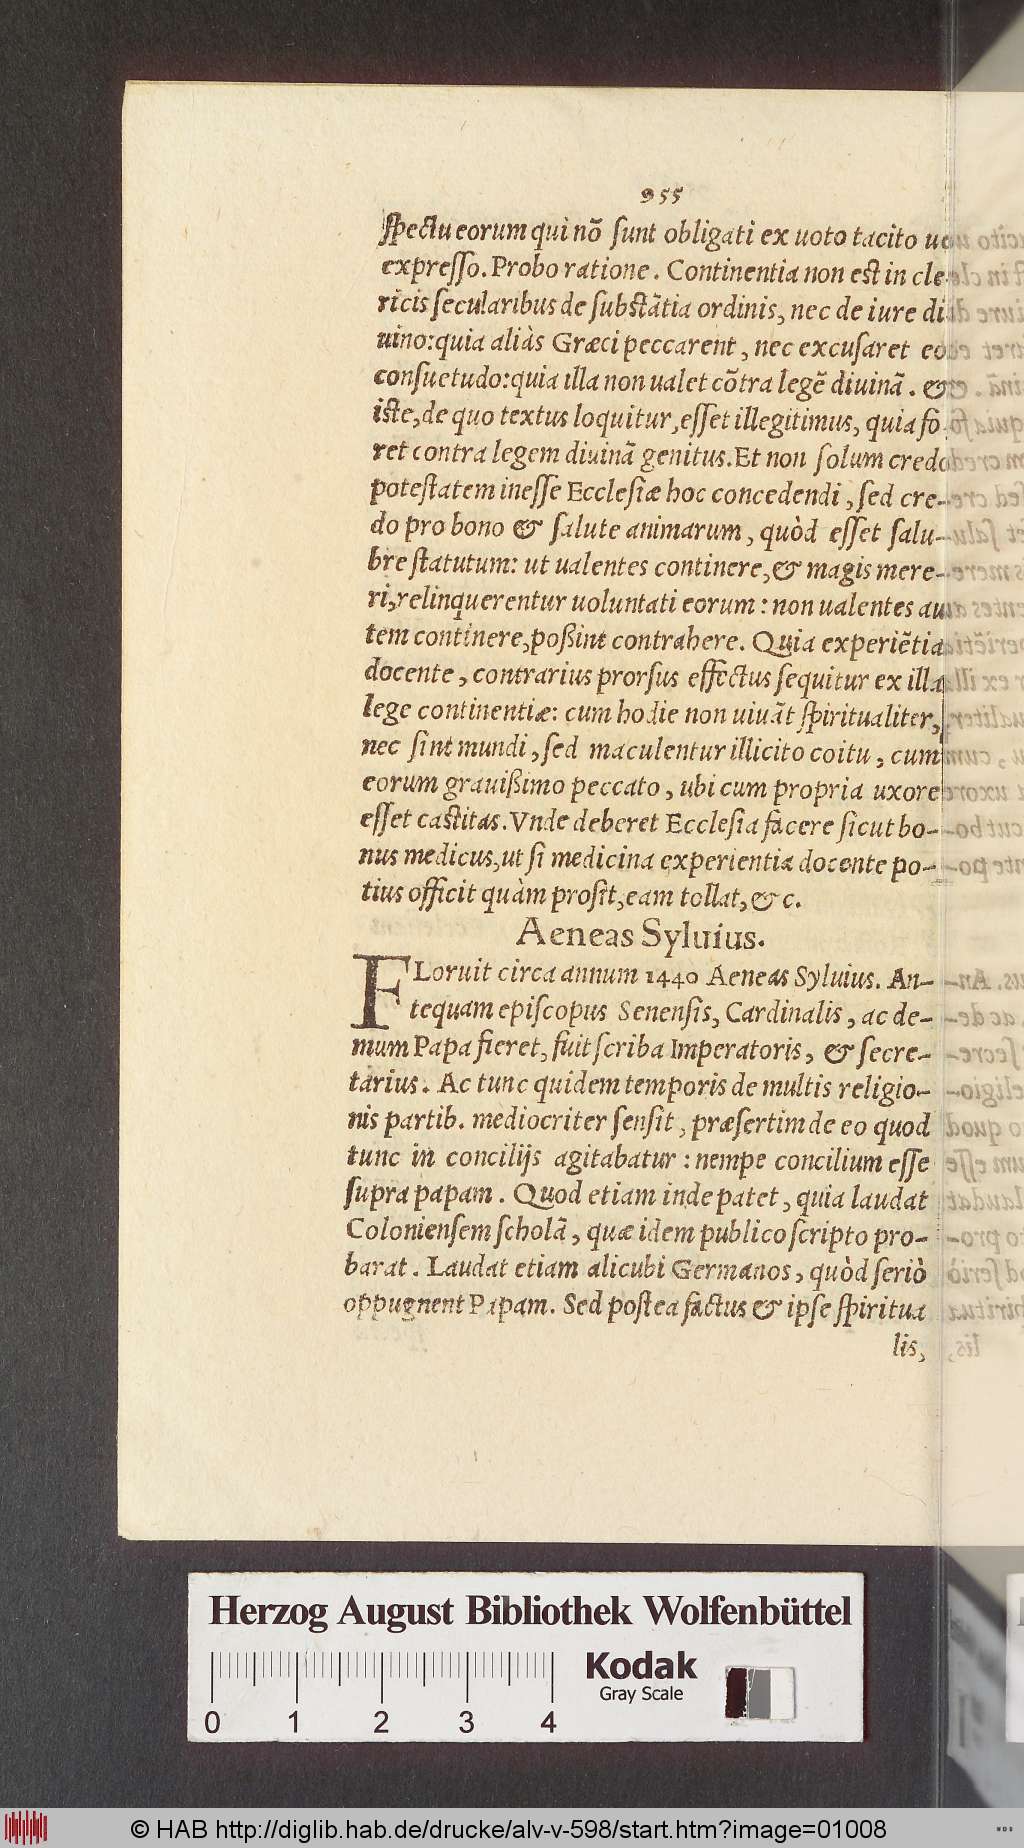 955
spectu eorum qui nõ sunt obligati ex uoto tacito uel
expresso. Probo ratione. Continentia non est in cle-
ricis secularibus de substãtia ordinis, nec de iure di
uino: quia aliàs Græci peccarent, nec excusaret eos
consuetudo: quia illa non ualet cõtra legẽ diuinã. &
iste, de quo textus loquitur, esset illegitimus, quia fo
ret contra legem diuinã genitus. Et non solum credo
potestatem inesse Ecclesiæ hoc concedendi, sed cre-
do pro bono & salute animarum, quòd esset salu-
bre statutum: ut ualentes continere, & magis mere-
ri, relinquerentur uoluntati eorum: non ualentes au
tem continere, poßint contrahere. Quia experiẽtia
docente, contrarius prorsus effectus sequitur ex illa
lege continentiæ: cum hodie non uiuãt spiritualiter,
nec sint mundi, sed maculentur illicito coitu, cum
eorum grauißimo peccato, ubi cum propria uxore
esset castitas. Vnde deberet Ecclesia facere sicut bo-
nus medicus, ut si medicina experientia docente po-
tius officit quàm prosit, eam tollat, & c.
Aeneas Syluius.
FLoruit circa annum 1440 Aeneas Syluius. An-
tequam episcopus Senensis, Cardinalis, ac de-
mum Papa fieret, fuit scriba Imperatoris, & secre-
tarius. Ac tunc quidem temporis de multis religio-
nis partib. mediocriter sensit, præsertim de eo quod
tunc in concilijs agitabatur: nempe concilium esse
supra papam. Quod etiam inde patet, quia laudat
Coloniensem scholã, quæ idem publico scripto pro-
barat. Laudat etiam alicubi Germanos, quòd seriò
oppugnent Papam. Sed postea factus & ipse spiritua
lis,
Herzog August Bibliothek Wolfenbüttel
Kodak
Gray Scale
0 1 2 3 4
© HAB http://diglib.hab.de/drucke/alv-v-598/start.htm?image=01008